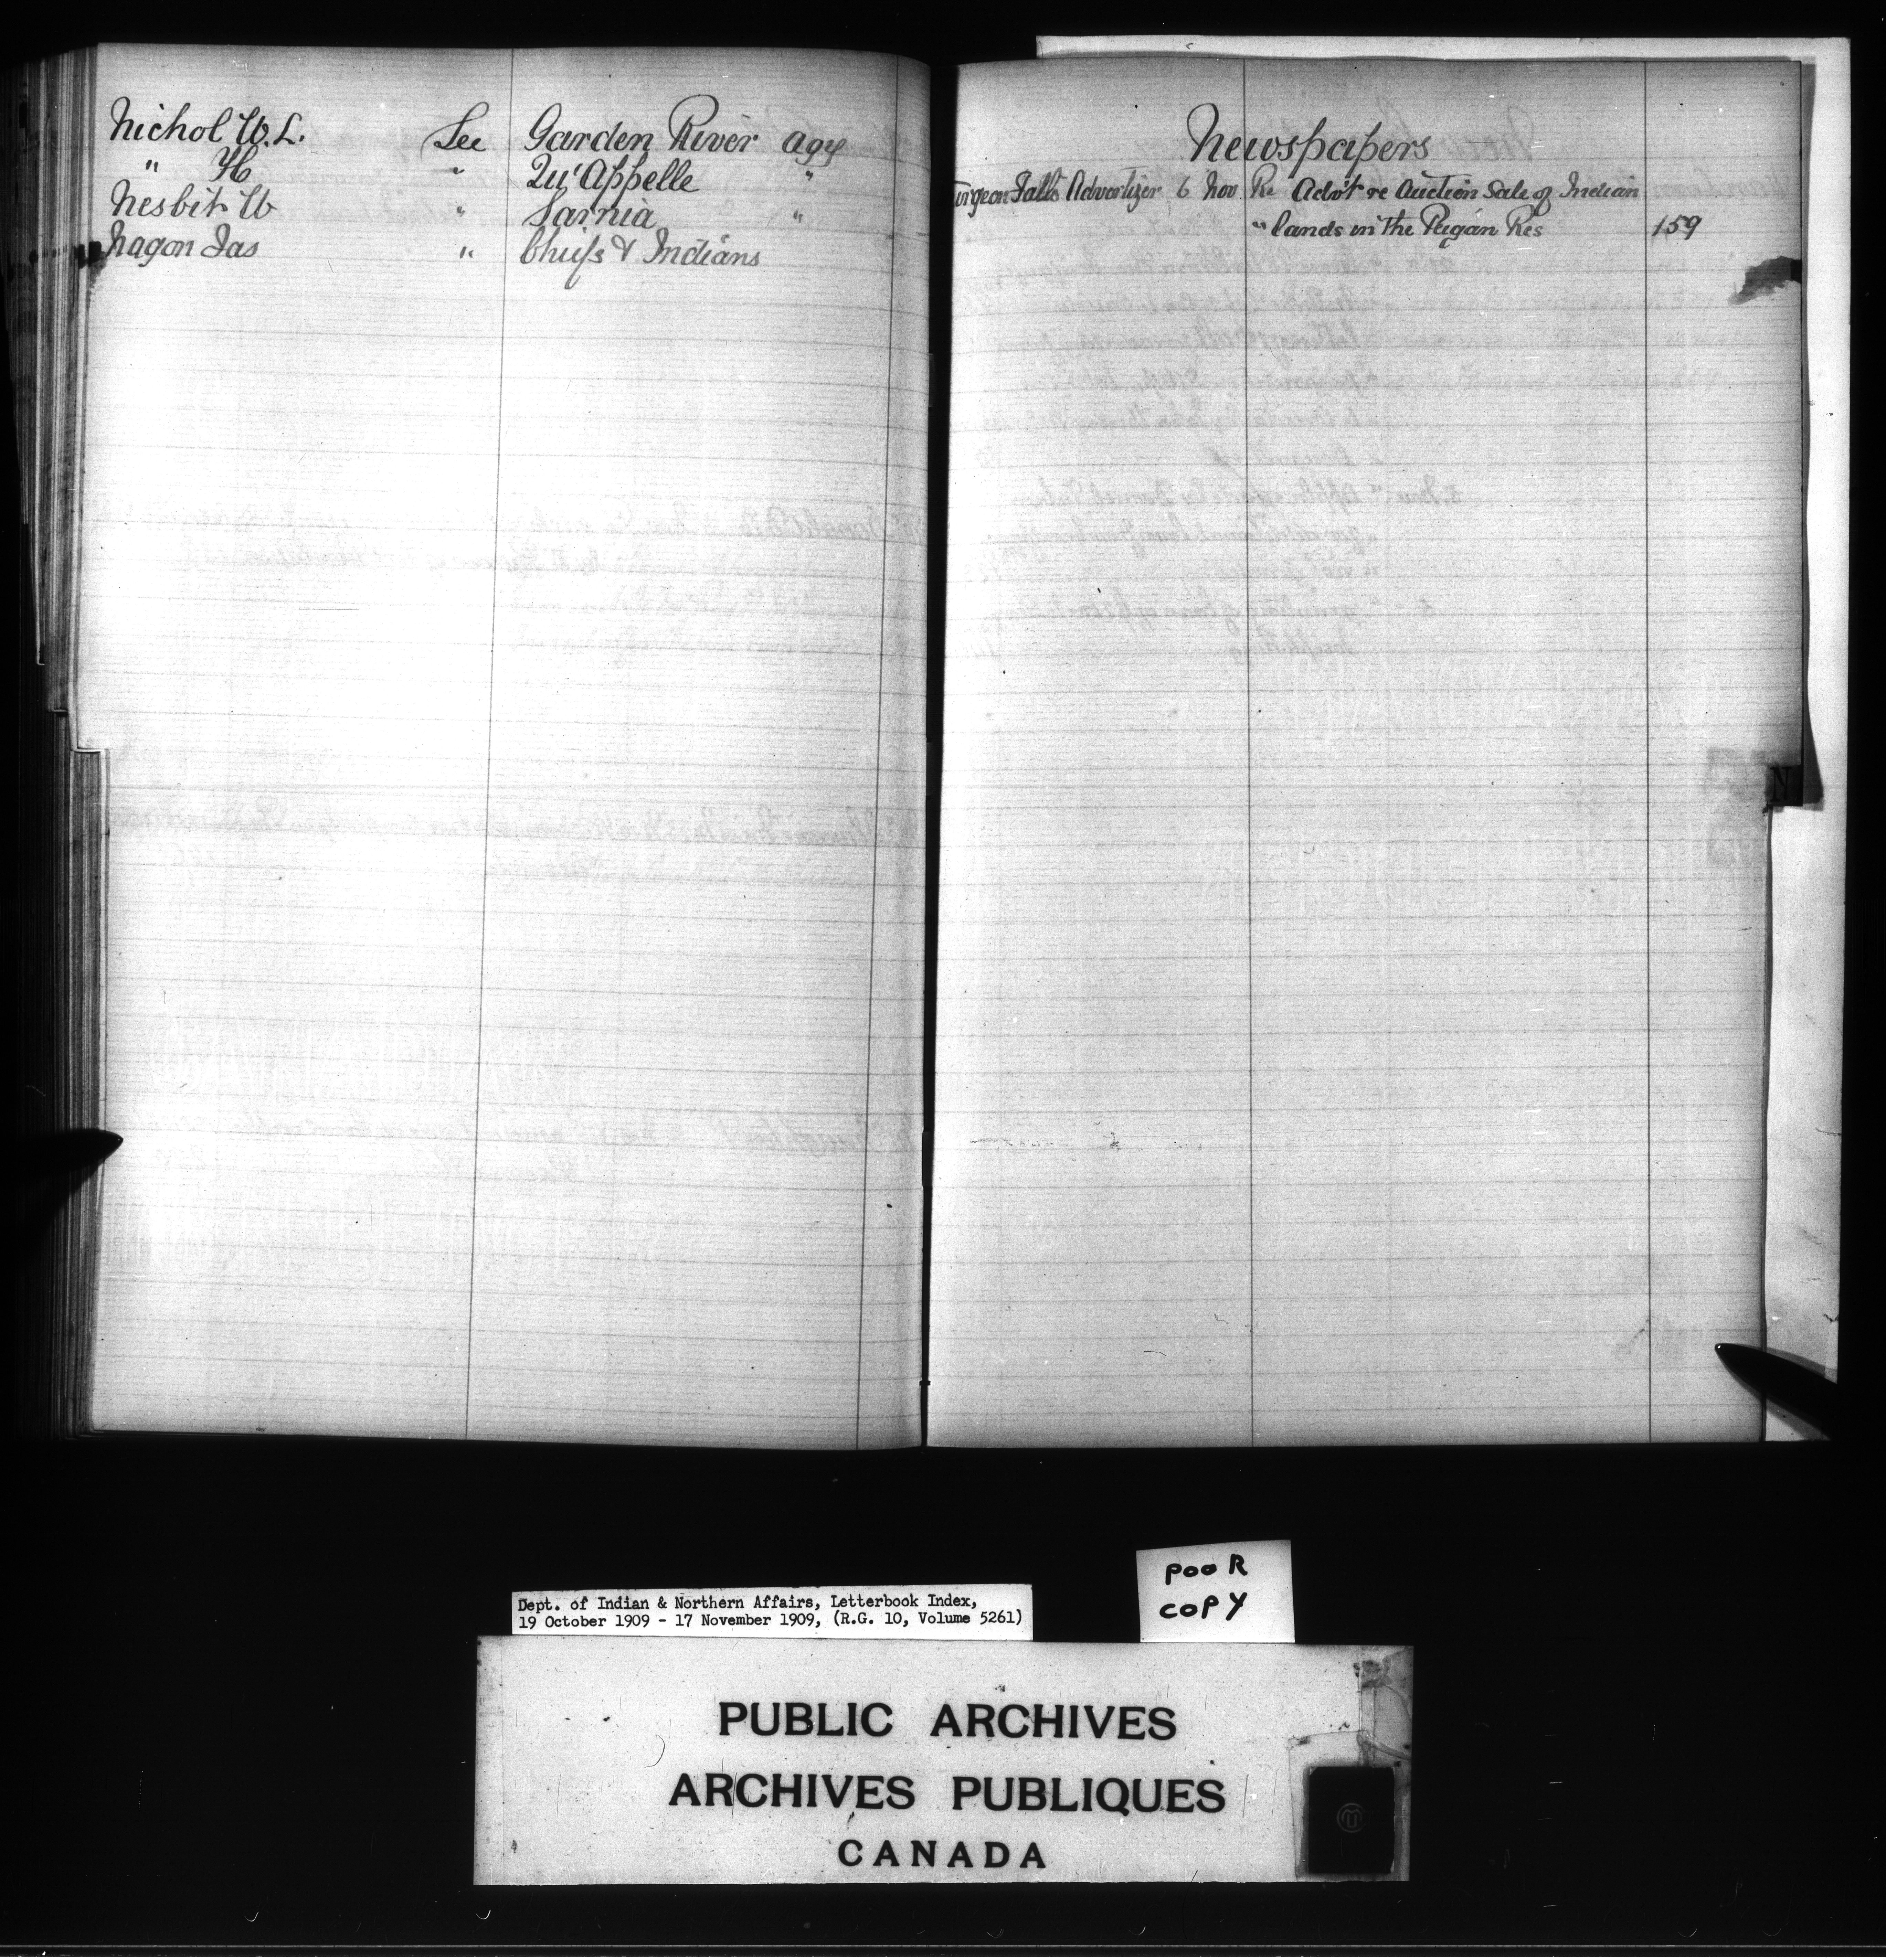 Nichol W. L. See Garden River Agy
" H " Qu'Appelle "
Nesbit W " Sarnia "
Nagon Jas " Chiefs & Indians
Newspapers
urgeon Falls Advertizer 6 Nov Re Advt re Auction Sale of Indian
" lands in the Peigan Res 159
N
Dept. of Indian & Northern Affairs, Letterbook Index,
19 October 1909 - 17 November 1909, (R.G. 10, Volume 5261)
POOR
COPY
PUBLIC ARCHIVES
ARCHIVES PUBLIQUES
CANADA